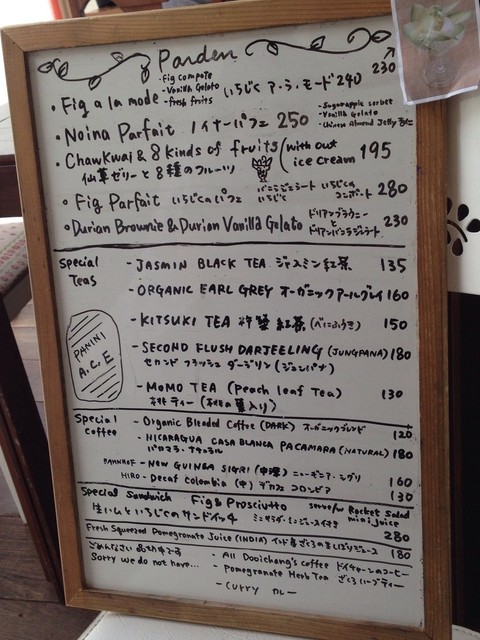 Parden
230
• Fig a la mode
- Fig compote
- Vanilla Gelato
- fresh fruits
いちじく ア・ラ・モード 240
• Noina Parfait ノイナーパフェ 250
- Sugarapple sorbet
- Vanilla Gelato
- Chinese Almond Jelly
• Chawkwai & 8 kinds of fruits (with out ice cream 195
仙草ゼリーと8種のフルーツ
• Fig Parfait いちじくのパフェ
バニラジェラート いちじくの コンポート 280
いちじく
• Durian Brownie & Durian Vanilla Gelato ドリアンブラウニー と ドリアンバニラジェラート 230
Special Teas
- JASMIN BLACK TEA ジャスミン紅茶 135
- ORGANIC EARL GREY オーガニックアールグレイ 160
- KITSUKI TEA 杵築 紅茶 (べにふうき) 150
- SECOND FLUSH DARJEELING (JUNGPANA) 180
セカンド フラッシュ ダージリン (ジュンパナ)
- MOMO TEA (Peach leaf Tea) 130
桃 ティー (桃の葉入り)
PANINI
A.C.E
Special coffee
- Organic Blended Coffee (DARK) オーガニックブレンド 120
- NICARAGUA CASA BLANCA PACAMARA (NATURAL) 180
パカマラ ナチュラル
BAHNHOF - NEW GUINEA SIGRI (中深) ニューギニア・シグリ 160
HIRO - Decaf Colombia (中) デカフェ コロンビア 130
Special Sandwich Fig & Prosciutto serve w/ Rocket Salad mini juice
生ハムといちじくのサンドイッチ ミニサラダ・ミニジュース付き 280
Fresh Squeezed Pomegranate Juice (INDIA) インド産ざくろの生しぼりジュース 180
ごめんなさい 品切れ中です
Sorry we do not have...
- All Dooichang's coffee ドイチャーンのコーヒー
- Pomegranate Herb Tea ざくろハーブティー
- Curry カレー